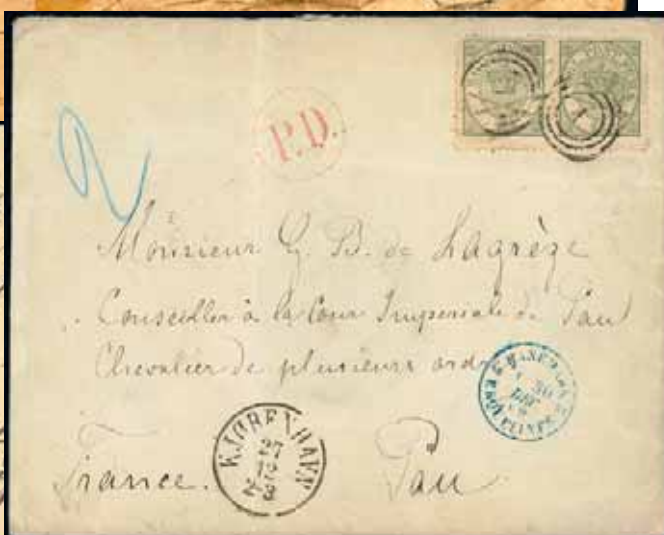 P.D.
2
Monsieur G. B. de Lagrèze
Conseiller à la Cour Imperiale de Pau
Chevalier de plusieurs ord
KJØBENHAVN
27
12
2-3
France. Pau
30
1